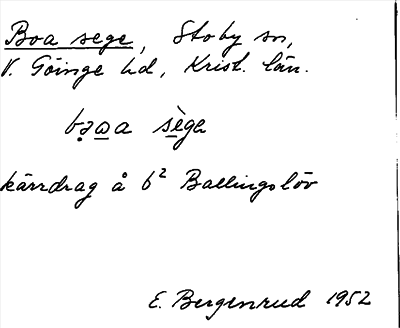 Boa sege, Stoby sn,
V. Göinge hd, Krist. län.
bə̣a̲a sè̲ga
kärrdrag å b² Ballingslöv
E. Bergenrud 1952